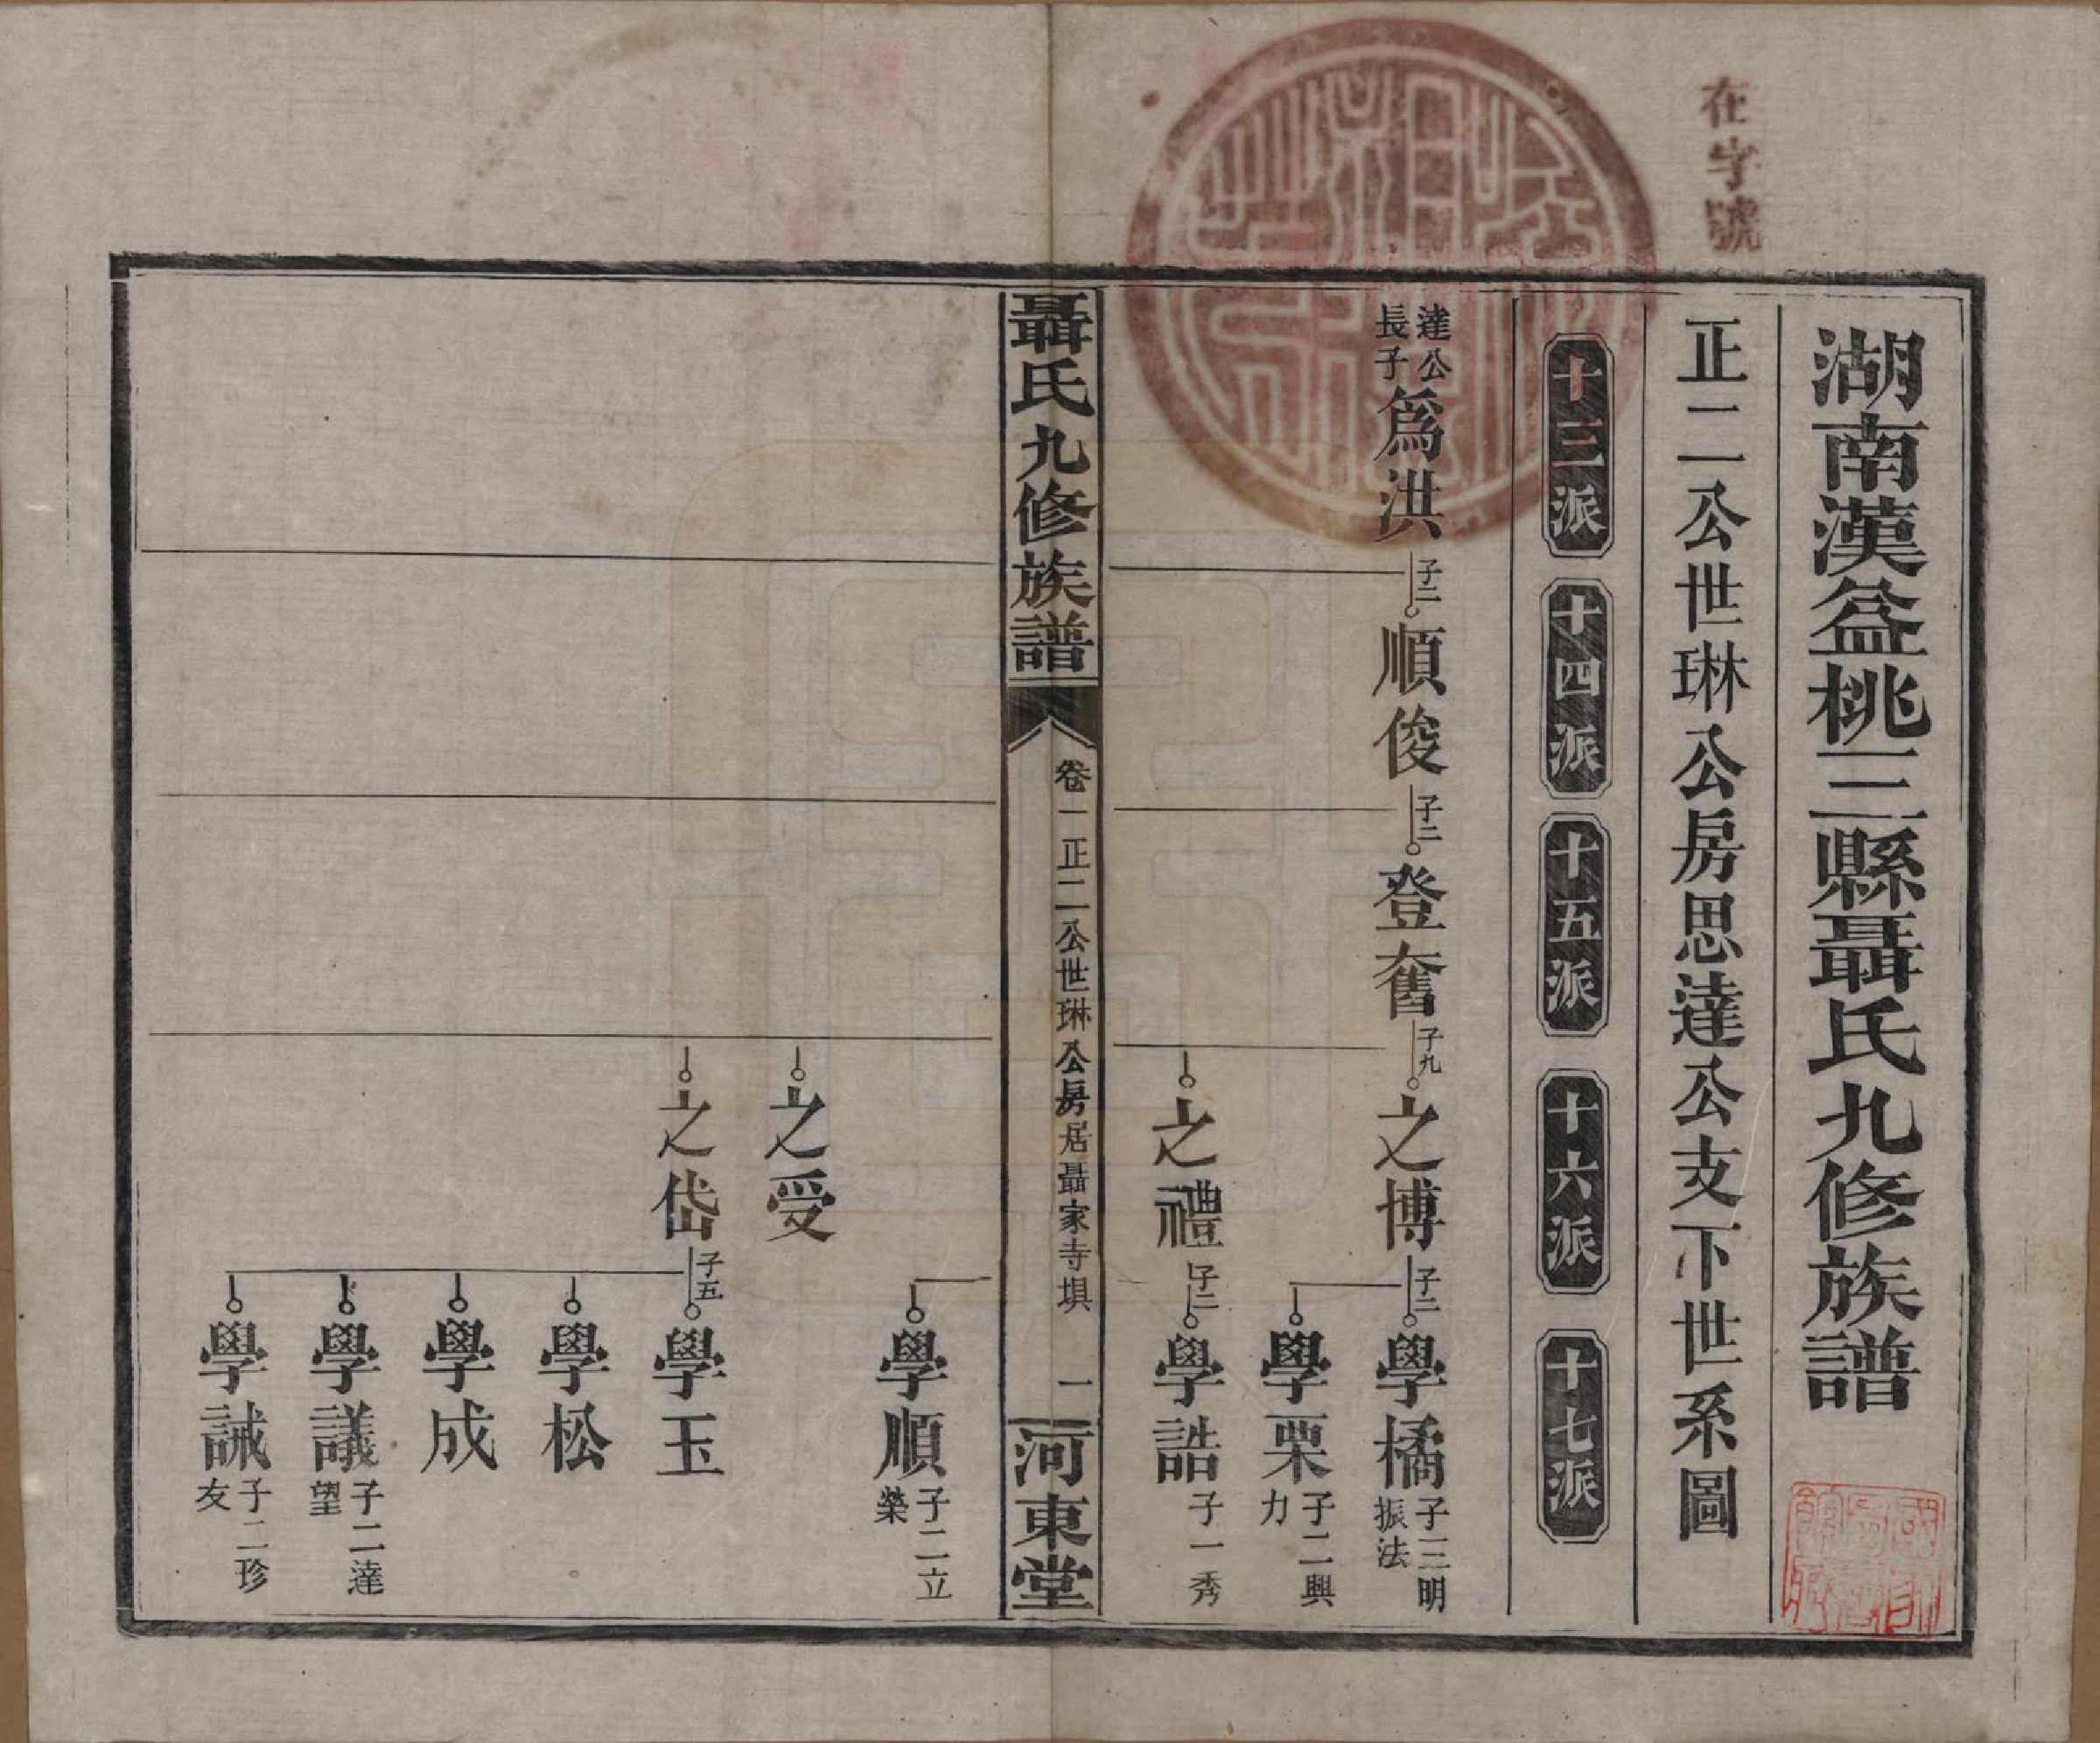 在字號
湖南漢益桃三縣聶氏九修族譜
正二公世琳公房思達公支下世系圖
十三派
十四派
十五派
十六派
十七派
達公長子
爲洪
子二
順俊
子二
登奮
子九
之博
子二
學橘
子三明振法
學栗
子二興力
之禮
子二
學誥
子一秀
聶氏九修族譜
卷一正二公世琳公房居聶家寺塤
一
河東堂
學順
子二立榮
之受
之岱
子五
學玉
學松
學成
學議
子二達望
學誡
子二珍友